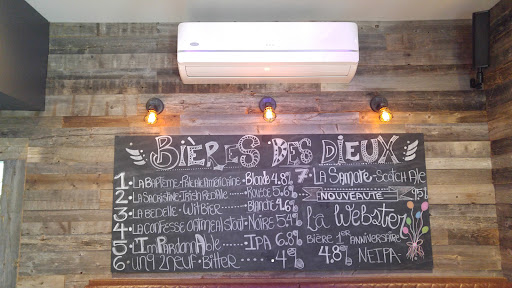 BIÈRES DES DIEUX
1 · LA BAPTÊME · PALE ALE AMÉRICAINE · Blonde 4.8%
2 · LA SACRISTINE · IRISH RED ALE ···· ROUSSE 5.6%
3 · LA BEDELLE · WITBIER ···· BLANCHE 4.6%
4 · LA CONFESSE OATMEAL STOUT · NOIRE 5.4%
5 · IMPARDONABLE ······ IPA 6.8%
6 · UN 9 2 NEUF · Bitter ····· 4%
7 · LA SOMAPE · Scotch Ale
NOUVEAUTÉ
La Webster
BIÈRE 1ER ANNIVERSAIRE
4.8% NEIPA